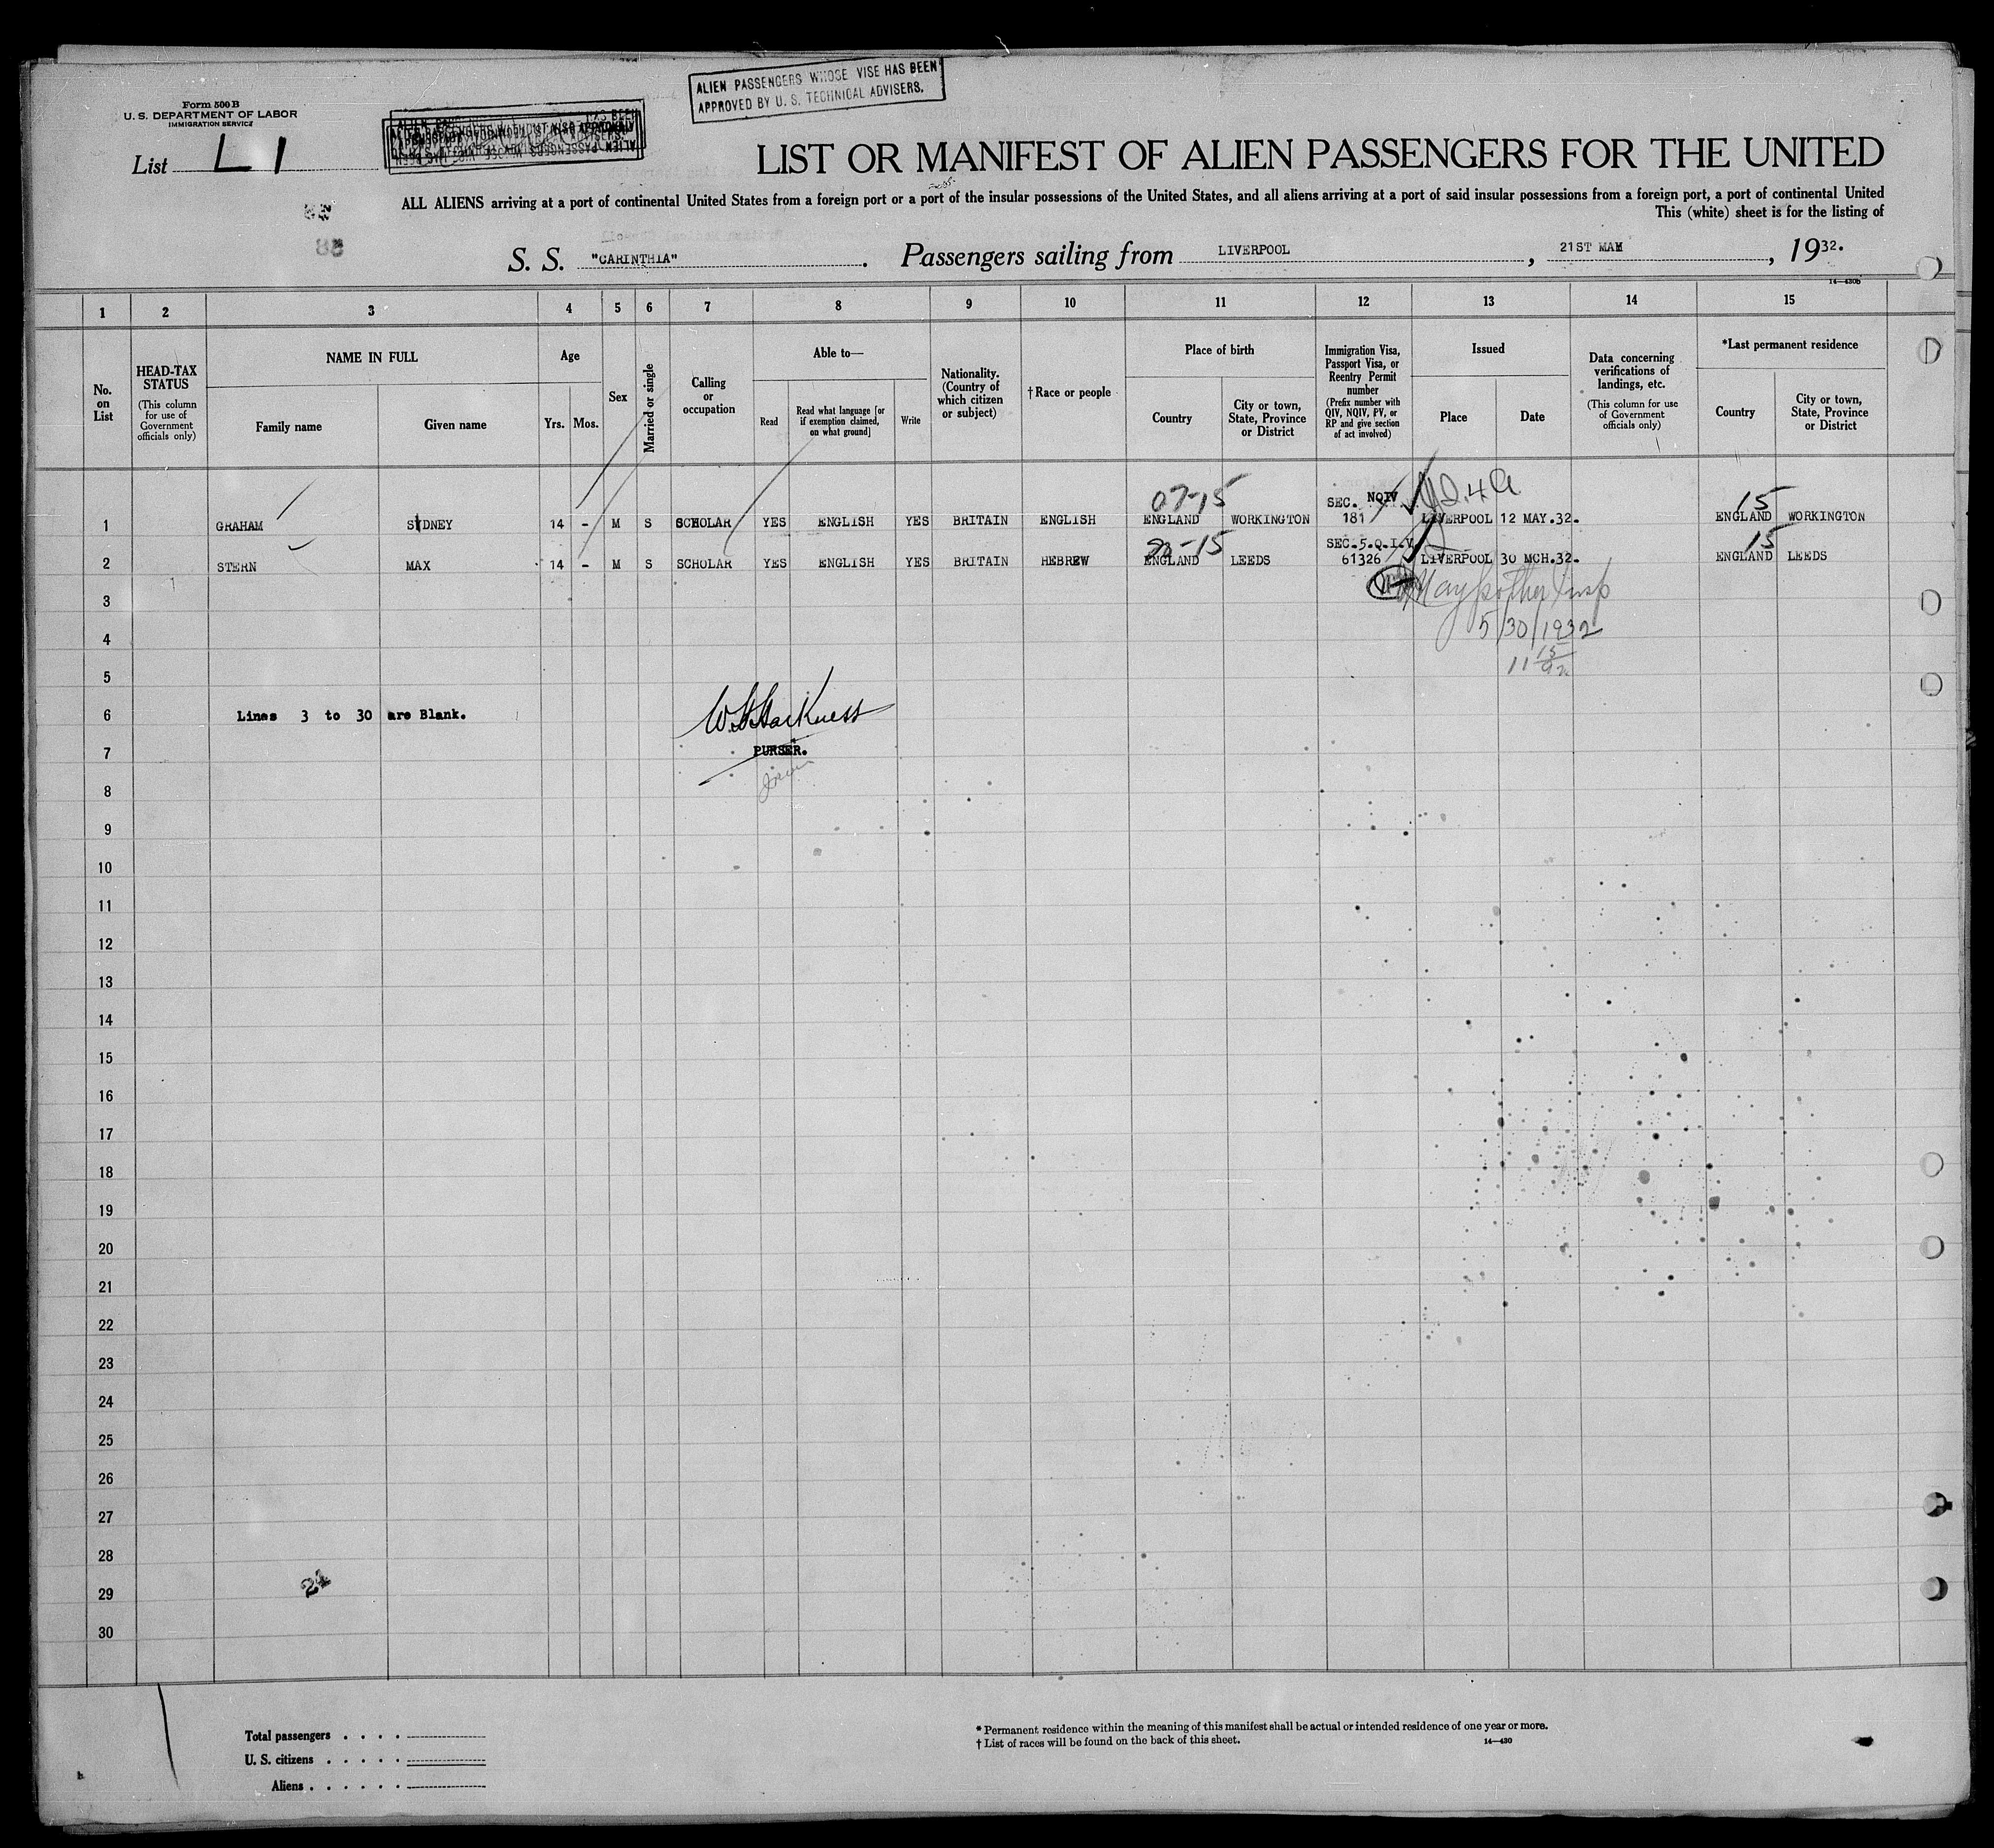 Form 500 B
U. S. DEPARTMENT OF LABOR
IMMIGRATION SERVICE
List L 1
ALIEN PASSENGERS WHOSE VISE HAS BEEN
APPROVED BY U. S. TECHNICAL ADVISERS.
LIST OR MANIFEST OF ALIEN PASSENGERS FOR THE UNITED
ALL ALIENS arriving at a port of continental United States from a foreign port or a port of the insular possessions of the United States, and all aliens arriving at a port of said insular possessions from a foreign port, a port of continental United
This (white) sheet is for the listing of
88
S. S. "CARINTHIA". Passengers sailing from LIVERPOOL, 21ST MAY, 1932.
14—430b
1 2 3 4 5 6 7 8 9 10 11 12 13 14 15
No. on List
HEAD-TAX STATUS
(This column for use of Government officials only)
NAME IN FULL
Family name
Given name
Age
Yrs. Mos.
Sex
Married or single
Calling or occupation
Able to—
Read
Read what language [or if exemption claimed, on what ground]
Write
Nationality. (Country of which citizen or subject)
† Race or people
Place of birth
Country
City or town, State, Province or District
Immigration Visa, Passport Visa, or Reentry Permit number
(Prefix number with QIV, NQIV, PV, or RP and give section of act involved)
Issued
Place
Date
Data concerning verifications of landings, etc.
(This column for use of Government officials only)
*Last permanent residence
Country
City or town, State, Province or District
07-15 SEC. NQIV. 4 15
1 GRAHAM SYDNEY 14 - M S SCHOLAR YES ENGLISH YES BRITAIN ENGLISH ENGLAND WORKINGTON 181 LIVERPOOL 12 MAY.32. ENGLAND WORKINGTON
-15 SEC.5.Q.I.V. 15
2 STERN MAX 14 - M S SCHOLAR YES ENGLISH YES BRITAIN HEBREW ENGLAND LEEDS 61326 LIVERPOOL 30 MCH.32. ENGLAND LEEDS
3
4 5/30/1932
5 11 15
6 Lines 3 to 30 are Blank. W. Harkness
7 PURSER.
8
9
10
11
12
13
14
15
16
17
18
19
20
21
22
23
24
25
26
27
28
29 24
30
Total passengers . . . .
U. S. citizens . . . . .
Aliens . . . . . .
* Permanent residence within the meaning of this manifest shall be actual or intended residence of one year or more.
† List of races will be found on the back of this sheet. 14—430